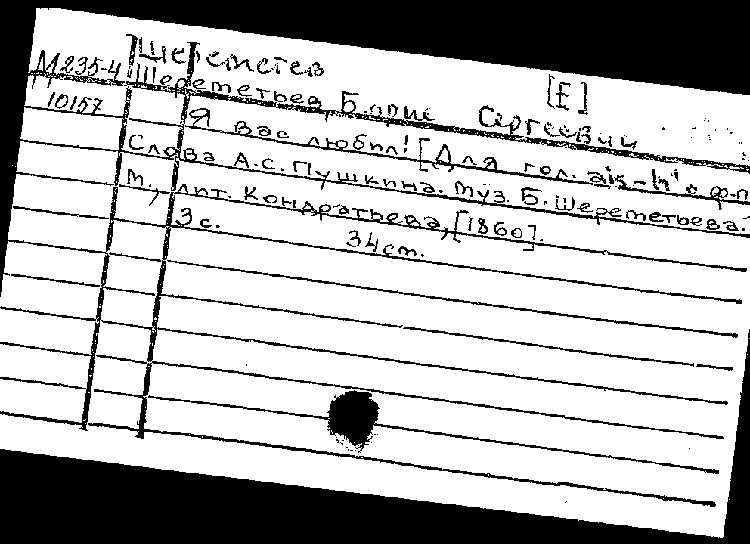 Шереметев
М235-4 Шереметьев Борис Сергеевич [Е]
10157 Я вас любил! [Для гол. ais-h¹ с ф-п.
Слова А.С. Пушкина. Муз. Б. Шереметьева.
М., лит. Кондратьева, [1860].
3 с. 34 cm.